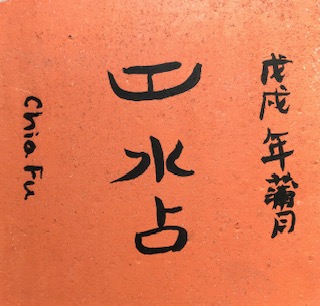 戊戌年蒲月
水占
Chia Fu